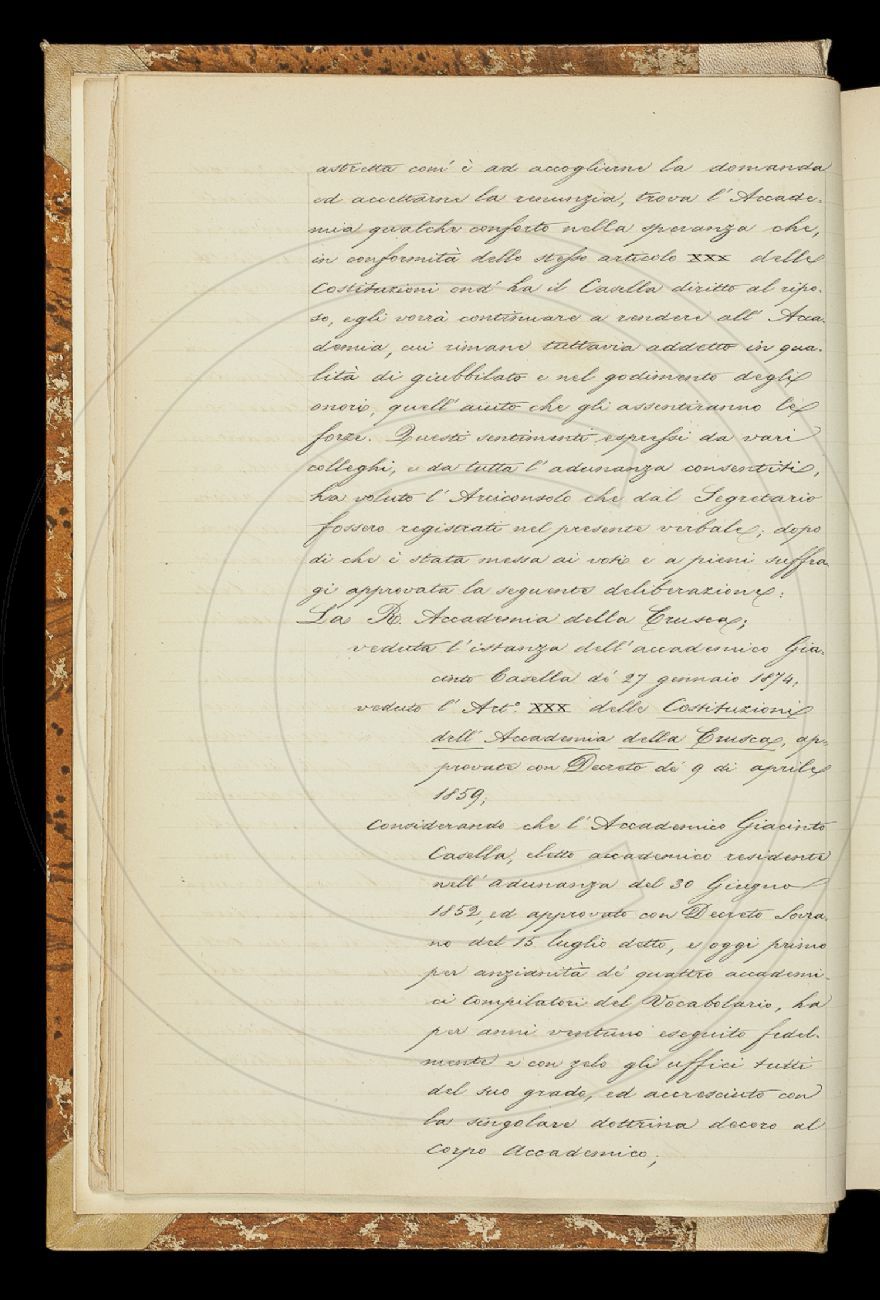 astretta com' è ad accoglierne la domanda
ed accettarne la renunzia, trova l'Accade-
mia qualche conforto nella speranza che,
in conformità dello stesso articolo XXX delle
Costituzioni ond' ha il Casella diritto al ripo-
so, egli vorrà continuare a rendere all' Acca-
demia, cui rimane tuttavia addetto in qua-
lità di giubbilato e nel godimento degli
onori, quell' aiuto che gli assentiranno le
forze. Questi sentimenti espressi da vari
colleghi, e da tutta l'adunanza consentiti,
ha voluto l'Arciconsolo che dal Segretario
fossero registrati nel presente verbale; dopo
di che è stata messa ai voti e a pieni suffra-
gi approvata la seguente deliberazione:
La R. Accademia della Crusca;
veduta l'istanza dell'accademico Gia-
cinto Casella de' 27 gennaio 1874;
veduto l'Art.° XXX delle Costituzioni
dell' Accademia della Crusca, ap-
provate con Decreto de' 9 di aprile
1859;
Considerando che l'Accademico Giacinto
Casella, eletto accademico residente
nell' adunanza del 30 Giugno
1852, ed approvato con Decreto Sovra-
no del 15 luglio detto, e oggi primo
per anzianità de' quattro accademi-
ci Compilatori del Vocabolario, ha
per anni ventuno eseguito fedel-
mente e con zelo gli uffici tutti
del suo grado, ed accresciuto con
la singolare dottrina decoro al
Corpo Accademico;